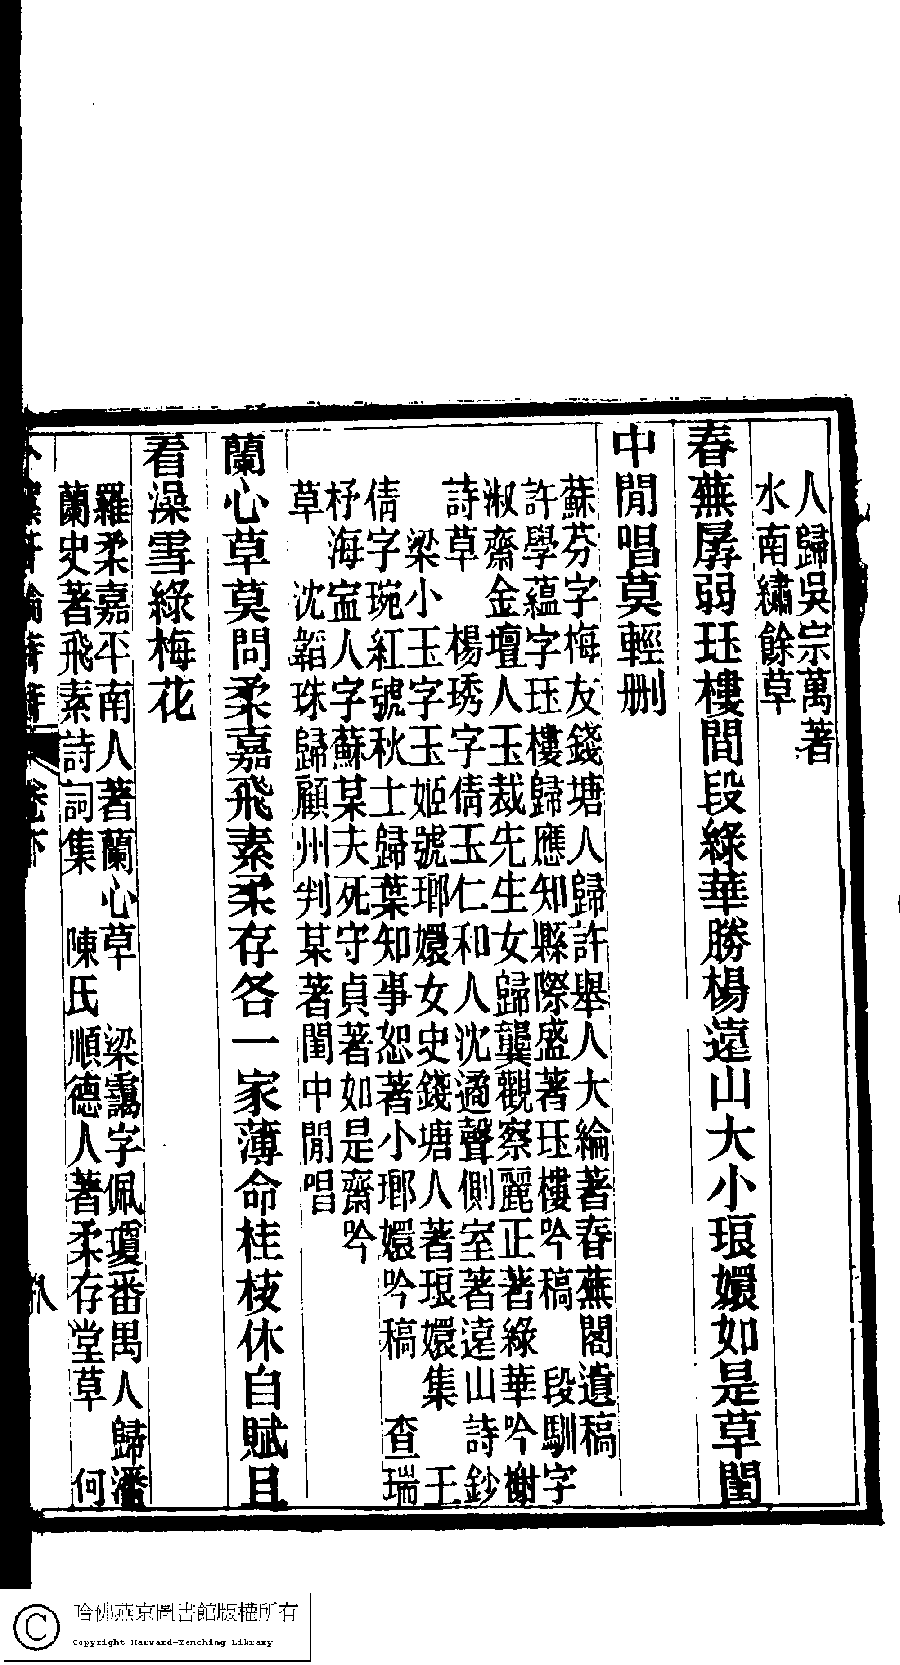 人歸吳宗萬著
水南繡餘草
春蕪孱弱珏樓間段綠華勝楊遠山大小琅嬛如是草閨
中閒唱莫輕刪
蘇芬字梅友錢塘人歸許舉人大綸著春蕪閣遺稿
許學蘊字珏樓歸應知縣際盛著珏樓吟稿　段馴字
淑齋金壇人玉裁先生女歸龔觀察麗正著綠華吟榭
詩草　楊琇字倩玉仁和人沈遹聲側室著遠山詩鈔
梁小玉字玉姬號瑯嬛女史錢塘人著琅嬛集　王
倩字琬紅號秋士歸葉知事恕著小瑯嬛吟稿　查瑞
杼海寍人字蘇某夫死守貞著如是齋吟
草　沈韜珠歸顧州判某著閨中閒唱
蘭心草莫問柔嘉飛素柔存各一家薄命桂枝休自賦且
看澡雪綠梅花
羅柔嘉平南人著蘭心草　梁靄字佩瓊番禺人歸潘
蘭史著飛素詩詞集　陳氏順德人著柔存堂草　何
卷下
八
哈佛燕京圖書館版權所有
Copyright Harvard-Yenching Library